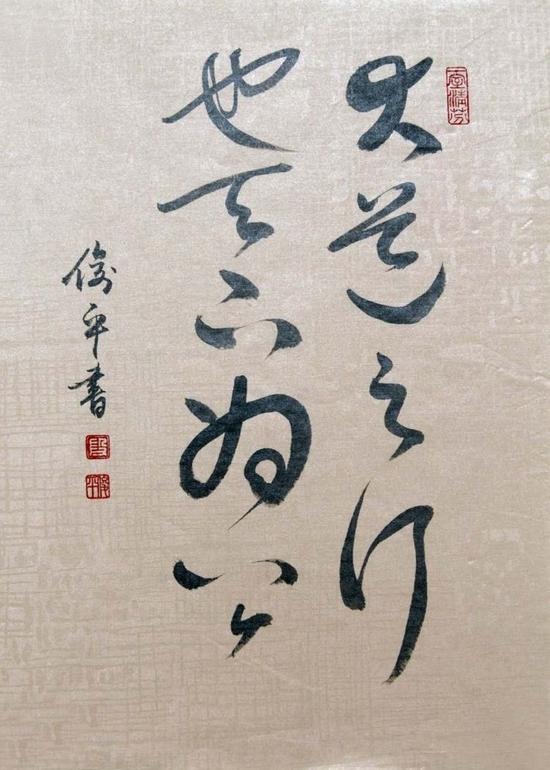 大道之行
也天下为公
俊平书
段